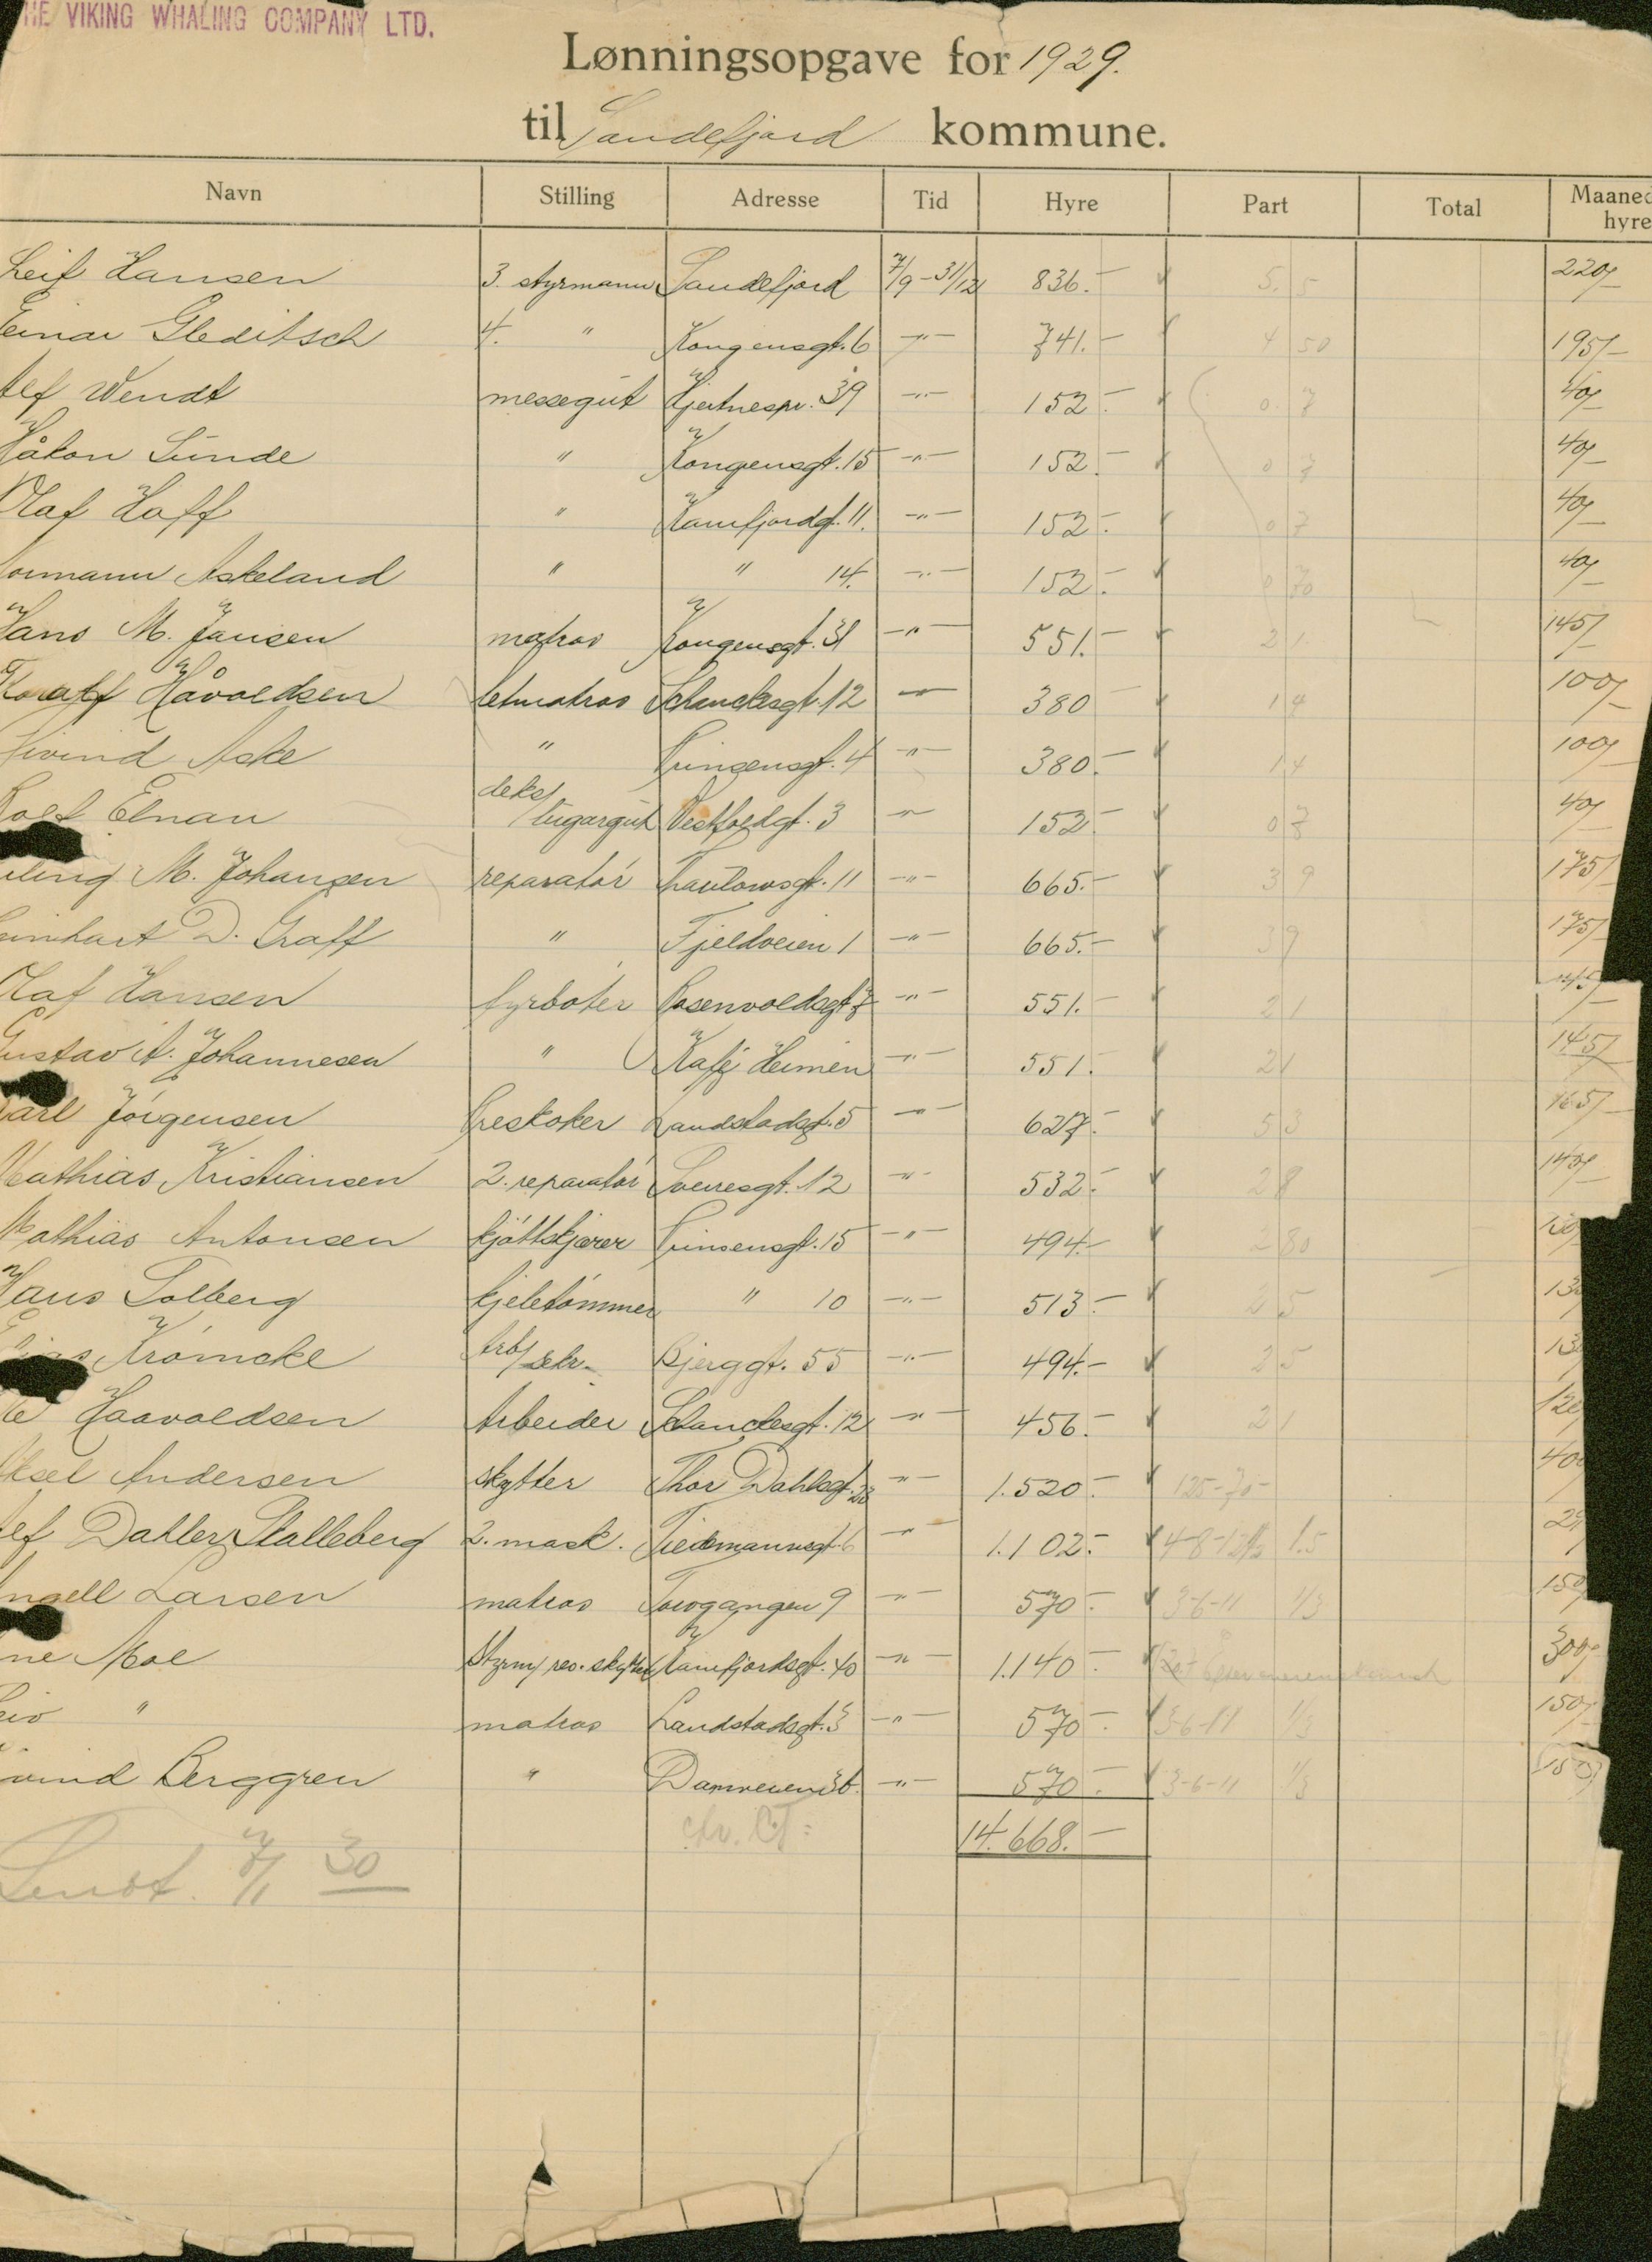 HE VIKING WHALING COMPANY LTD.
Lønningsopgave for 1929.
til Sandefjord kommune.
Navn Stilling Adresse Tid Hyre Part Total Maaned hyre
Leif Hansen 3. styrmann Sandefjord 7/9-31/12 836.- 5. 5 220/-
Einar Gleditsch 4. " Kongensgt. 6 -"- 741.- 4 50 195/-
Alf Wendt messegut Hjertnespr. 39 -"- 152.- 0. 7 40/-
Håkon Sunde " Kongensgt. 15 -"- 152.- 0 7 40/-
Olaf Hoff " Kamfjordgt. 11. -"- 152.- 0 7 40/-
ormann Askeland " " 14. -"- 152.- 0 70 40/-
Hans M. Jansen matros Kongensgt. 31 -"- 551.- 2 1 145/-
Toralf Håvaldsen letmatros Schanckesgt. 12 -"- 380 - 1 4 100/-
Eivind Aske " Prinsensgt. 4 -"- 380.- 1 4 100/-
Rolf Elnan deks/lugargut Vestfoldgt. 3 -"- 152.- 0 7 40/-
rling M. Johansen reparatör Thaulowsgt. 11 -"- 665.- 3 9 175/-
einhart D. Graff " Fjeldveien 1 -"- 665.- 3 9 175/-
Olaf Hansen fyrböter Rosenvoldsgt. 7 -"- 551.- 2 1 145/-
Gustav A. Johannesen " Kafe Heimen -"- 551.- 2 1 145/-
Karl Jörgensen Preskoker Landstadsgt. 5 -"- 627.- 5 3 165/-
Mathias Kristiansen 2. reparatör Sverresgt. 12 -"- 532.- 2 8 140/-
Mathias Antonsen kjöttskjærer Prinsensgt. 15 -"- 494.- 2 80 130/-
Hans Solberg kjeletömmer " 10 -"- 513.- 2 5 13
Krömcke Arb/sekr. Bjerggt. 55 -"- 494.- 2 5 13
Haavaldsen Arbeider Schanckesgt. 12 -"- 456.- 2 1 120
Aksel Andersen skytter Thor Dahlsgt. 28 -"- 1.520.- 125-70- 400
lef Dahler Stalleberg 2. mask. Tiedemannsgt. 6 -"- 1.102.- 1.5 29
Ingell Larsen matros Torvgangen 9 -"- 570.- 3-6-11 1/3 150/
ne Moe Styrm/ res. skytter Kamfjordsgt. 40 -"- 1.140.- 300/-
eiv " matros Landstadsgt. 3 -"- 570.- 3-6-11 1/3 150/-
ivind Berggren " Damveien 36. -"- 570.- 3-6-11 1/3 150/
14.668.-
Sendt. 7/1 30